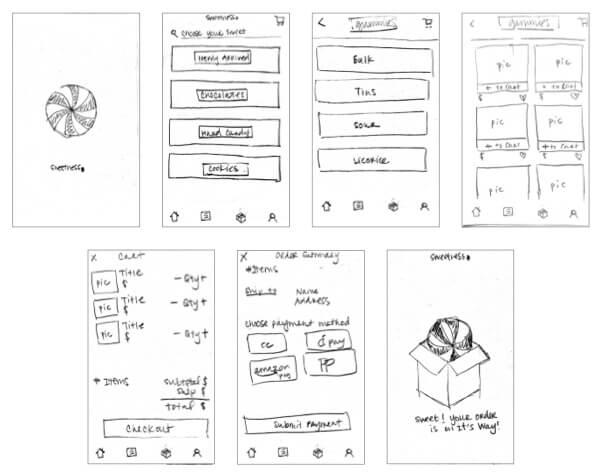 sweetness.
sweetness.
choose your sweet
Newly Arrived
Chocolates
Hard Candy
Cookies
gummies
Bulk
Tins
Sour
Licorice
gummies
pic pic
+ to Cart + to Cart
$ $
pic pic
+ to Cart + to Cart
$ $
pic pic
X Cart
pic Title - Qty +
$
pic Title - Qty +
$
pic Title - Qty +
$
# Items subtotal $
Ship $
total $
Checkout
X Order Summary
# Items
Ship to Name
Address
choose payment method
cc pay
amazon pay PP
Submit Payment
sweetness.
Sweet! Your order
is on It's Way!